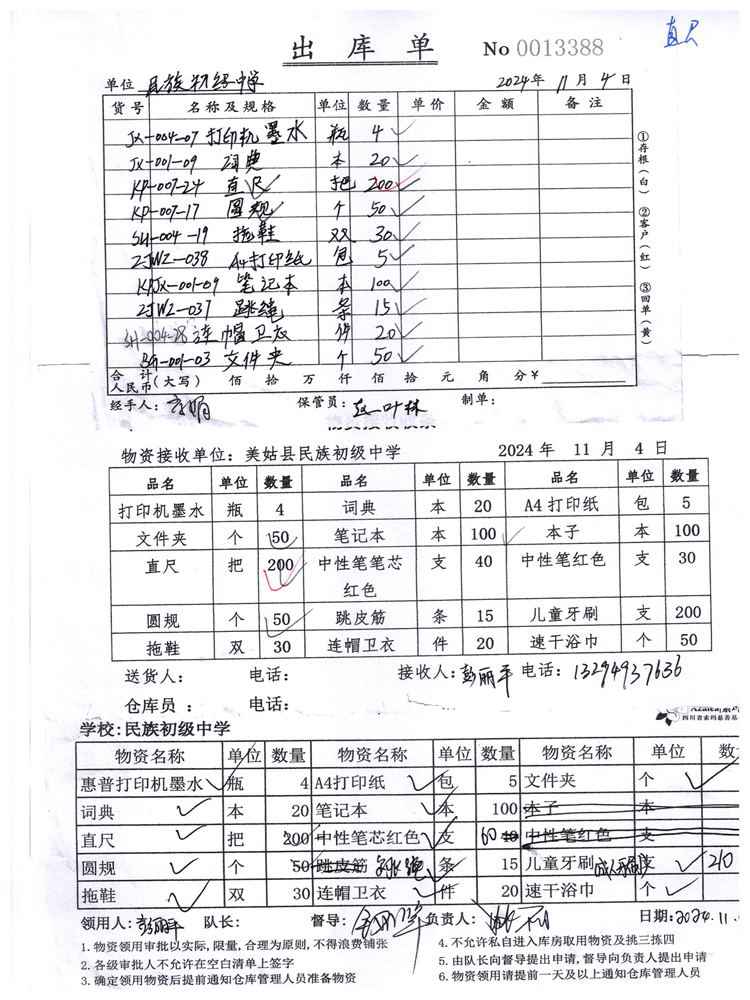 直尺
出库单 No 0013388
单位 民族初级中学 2024年 11月 4日
货号 名称及规格 单位 数量 单价 金额 备注
JX-004-07 打印机墨水 瓶 4
JX-001-09 词典 本 20
KP-007-24 直尺 把 200
KP-007-17 圆规 个 50
SH-004-19 拖鞋 双 30
ZJWZ-038 A4打印纸 包 5
KPJX-001-09 笔记本 本 100
ZJWZ-037 跳绳 条 15
SH-004-28 连帽卫衣 件 20
BG-001-03 文件夹 个 50
合计
人民币(大写) 佰 拾 万 仟 佰 拾 元 角 分¥
①存根(白) ②客户(红) ③回单(黄)
经手人: 保管员: 制单:
物资接收单位: 美姑县民族初级中学 2024 年 11 月 4 日
品名 单位 数量 品名 单位 数量 品名 单位 数量
打印机墨水 瓶 4 词典 本 20 A4打印纸 包 5
文件夹 个 50 笔记本 本 100 本子 本 100
直尺 把 200 中性笔笔芯红色 支 40 中性笔红色 支 30
圆规 个 50 跳皮筋 条 15 儿童牙刷 支 200
拖鞋 双 30 连帽卫衣 件 20 速干浴巾 个 50
送货人: 电话: 接收人: 彭丽平 电话: 13294937636
仓库员 : 电话:
学校: 民族初级中学
四川省索玛慈善基
物资名称 单位 数量 物资名称 单位 数量 物资名称 单位 数
惠普打印机墨水 瓶 4 A4打印纸 包 5 文件夹 个
词典 本 20 笔记本 本 100 本子 本
直尺 把 200 中性笔芯红色 支 60 40 中性笔红色 支
圆规 个 50 跳皮筋 跳绳 条 15 儿童牙刷 成人牙刷 支 210
拖鞋 双 30 连帽卫衣 件 20 速干浴巾 个
领用人: 彭丽平 队长: 督导: 负责人: 日期: 2024.11.
1. 物资领用审批以实际, 限量, 合理为原则, 不得浪费铺张
2. 各级审批人不允许在空白清单上签字
3. 确定领用物资后提前通知仓库管理人员准备物资
4. 不允许私自进入库房取用物资及挑三拣四
5. 由队长向督导提出申请, 督导向负责人提出申请
6. 物资领用请提前一天及以上通知仓库管理人员